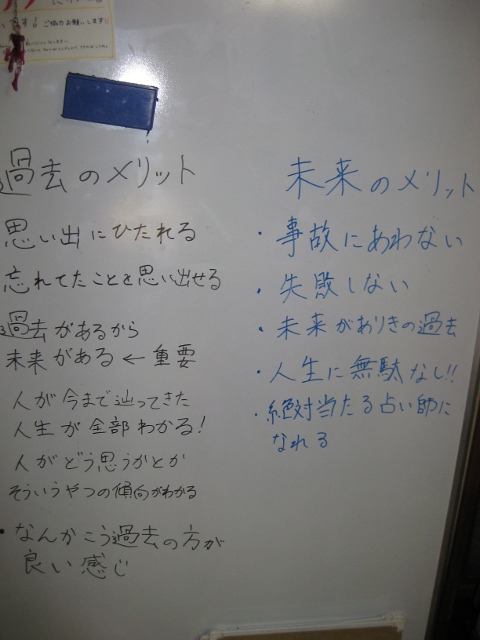 ご協力お願いします!!
過去のメリット
思い出にひたれる
忘れてたことを思い出せる
過去があるから
未来がある ← 重要
人が今まで辿ってきた
人生が全部わかる!
人がどう思うかとか
そういうやつの傾向がわかる
・なんかこう過去の方が
良い感じ
未来のメリット
・事故にあわない
・失敗しない
・未来がありきの過去
・人生に無駄なし!!
・絶対当たる占い師に
なれる